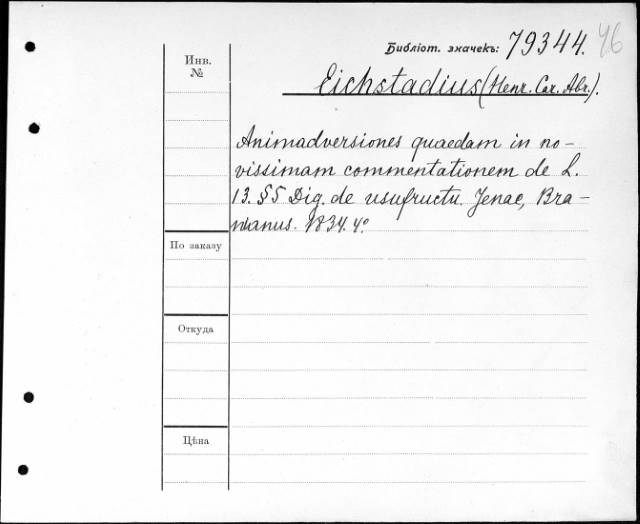 Библіот. значекъ: 79344. 46
Инв.
№
Eichstadius (Henr. Car. Abr.).
Animadversiones quaedam in no-
vissimam commentationem de L.
13. §5 Dig. de usufructu. Jenae, Bra-
nianus. 1834. 4º.
По заказу
Откуда
Цѣна